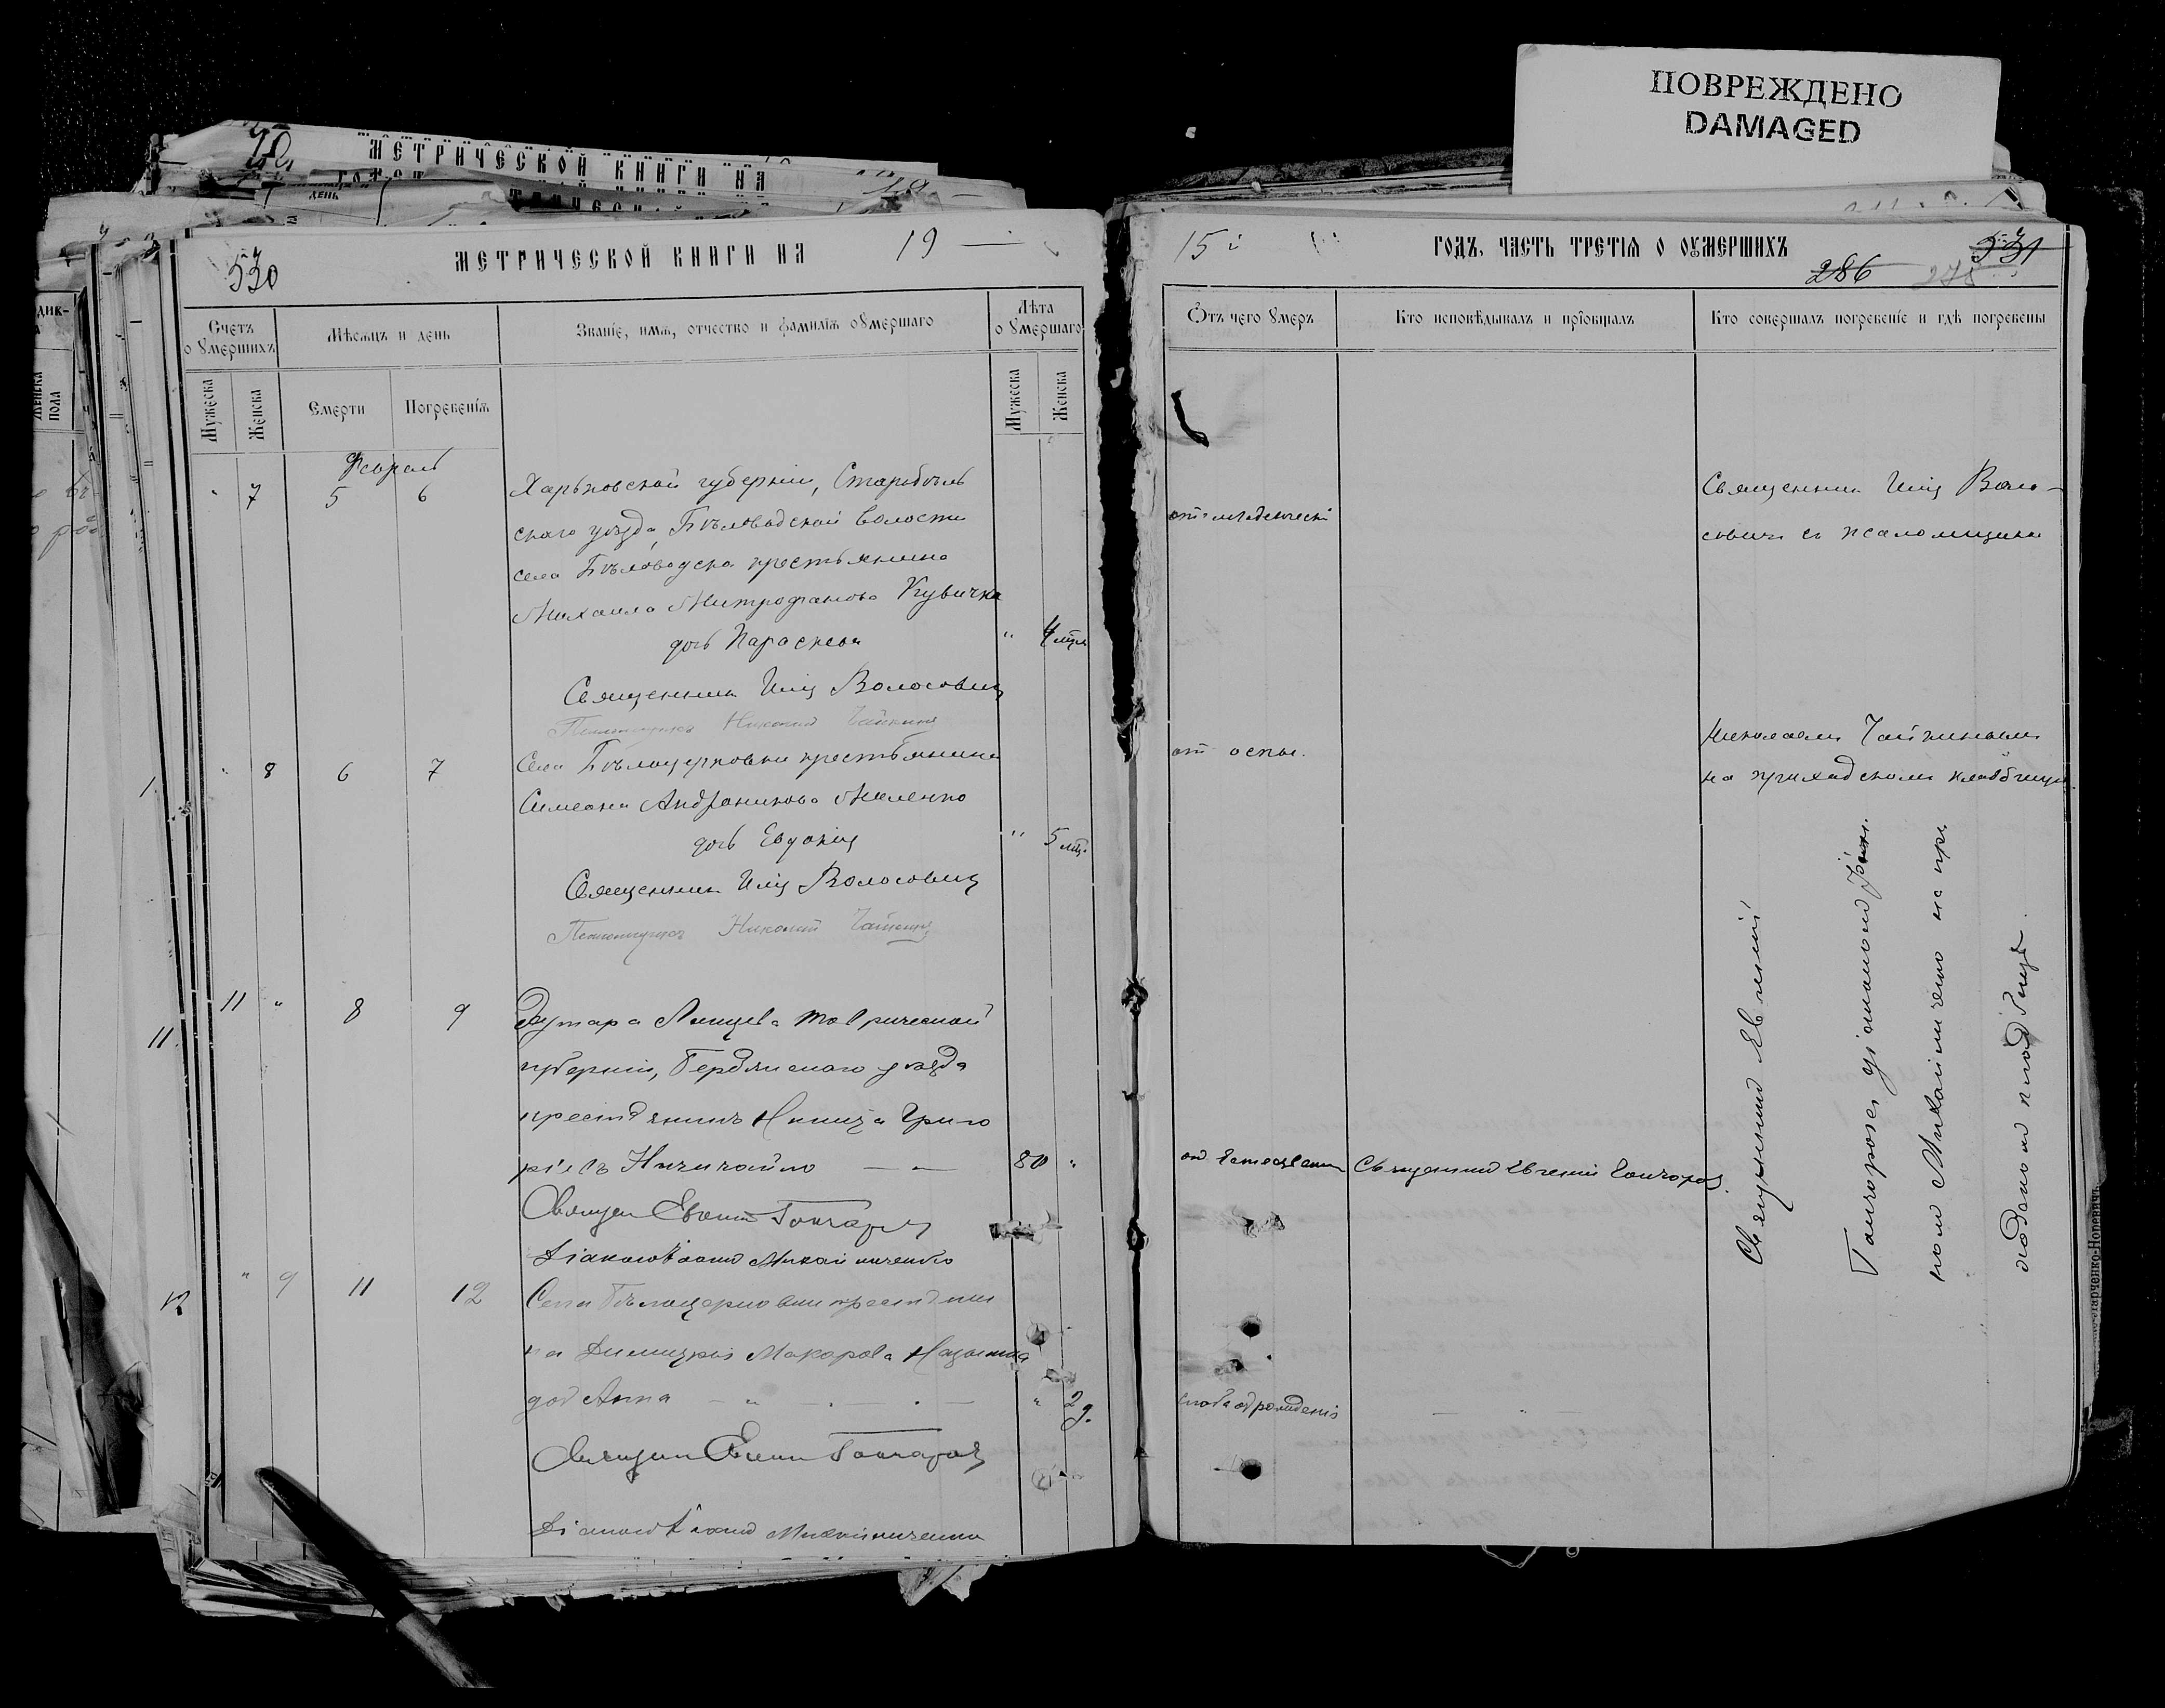 ПОВРЕЖДЕНО
DAMAGED
МЕТРИЧЕСКОЙ КНИГИ НА
530
МЕТРИЧЕСКОЙ КНИГИ НА 19
Счетъ о умершихъ
Мѣсяцъ и день
Званіе, имя, отчество и фамилія умершаго
Лѣта умершаго
Мужеска
Женска
Смерти
Погребенія
Мужеска
Женска
Февраль
" 7 5 6 Харьковской губерніи, Старобѣль
скаго уѣзда, Бѣловодской волости
села Бѣловодска крестьянина
Михаила Митрофанова Кувичка
дочь Параскева " 4 мѣц.
Священникъ Илія Волосовичъ
Псаломщикъ Николай Чайкинъ
" 8 6 7 Села Бѣлоцерковки крестьянина
Симеона Андроникова
дочь Евдокія " 5 мѣц.
Священникъ Илія Волосовичъ
Псаломщикъ Николай Чайкинъ
11 " 8 9 Хутара Таврической
губерніи, Бердянскаго уѣзда
крестьянинъ Никита Григо
ріевъ Ничичайло 80 "
Священ Евгеній Гончаровъ
Діаконъ Іоаннъ Микайличенко
11
" 9 11 12 Села Бѣлоцерковки крестьяни
на Димитрія Макарова
дочь Анна " 2 г.
12
Священ Евгеній Гончаровъ
Діаконъ Іоаннъ Микайличенко
15 ГОДЪ, ЧАСТЬ ТРЕТІЯ О УМЕРШИХЪ 531
286 275
Отъ чего умеръ
Кто исповѣдывалъ и пріобщалъ
Кто совершалъ погребеніе и гдѣ погребены
Священникъ Илія Воло-
совичъ съ псаломщикомъ
Николаемъ Чайкинымъ
на приходскомъ кладбищѣ
отъ оспы.
Священникъ Евгеній Гончаровъ
Священникъ Евгеній
Гончаровъ съ діакономъ Іоан.
номъ Микайличенко на при
ходскомъ кладбищѣ.
слаба отъ рожденія